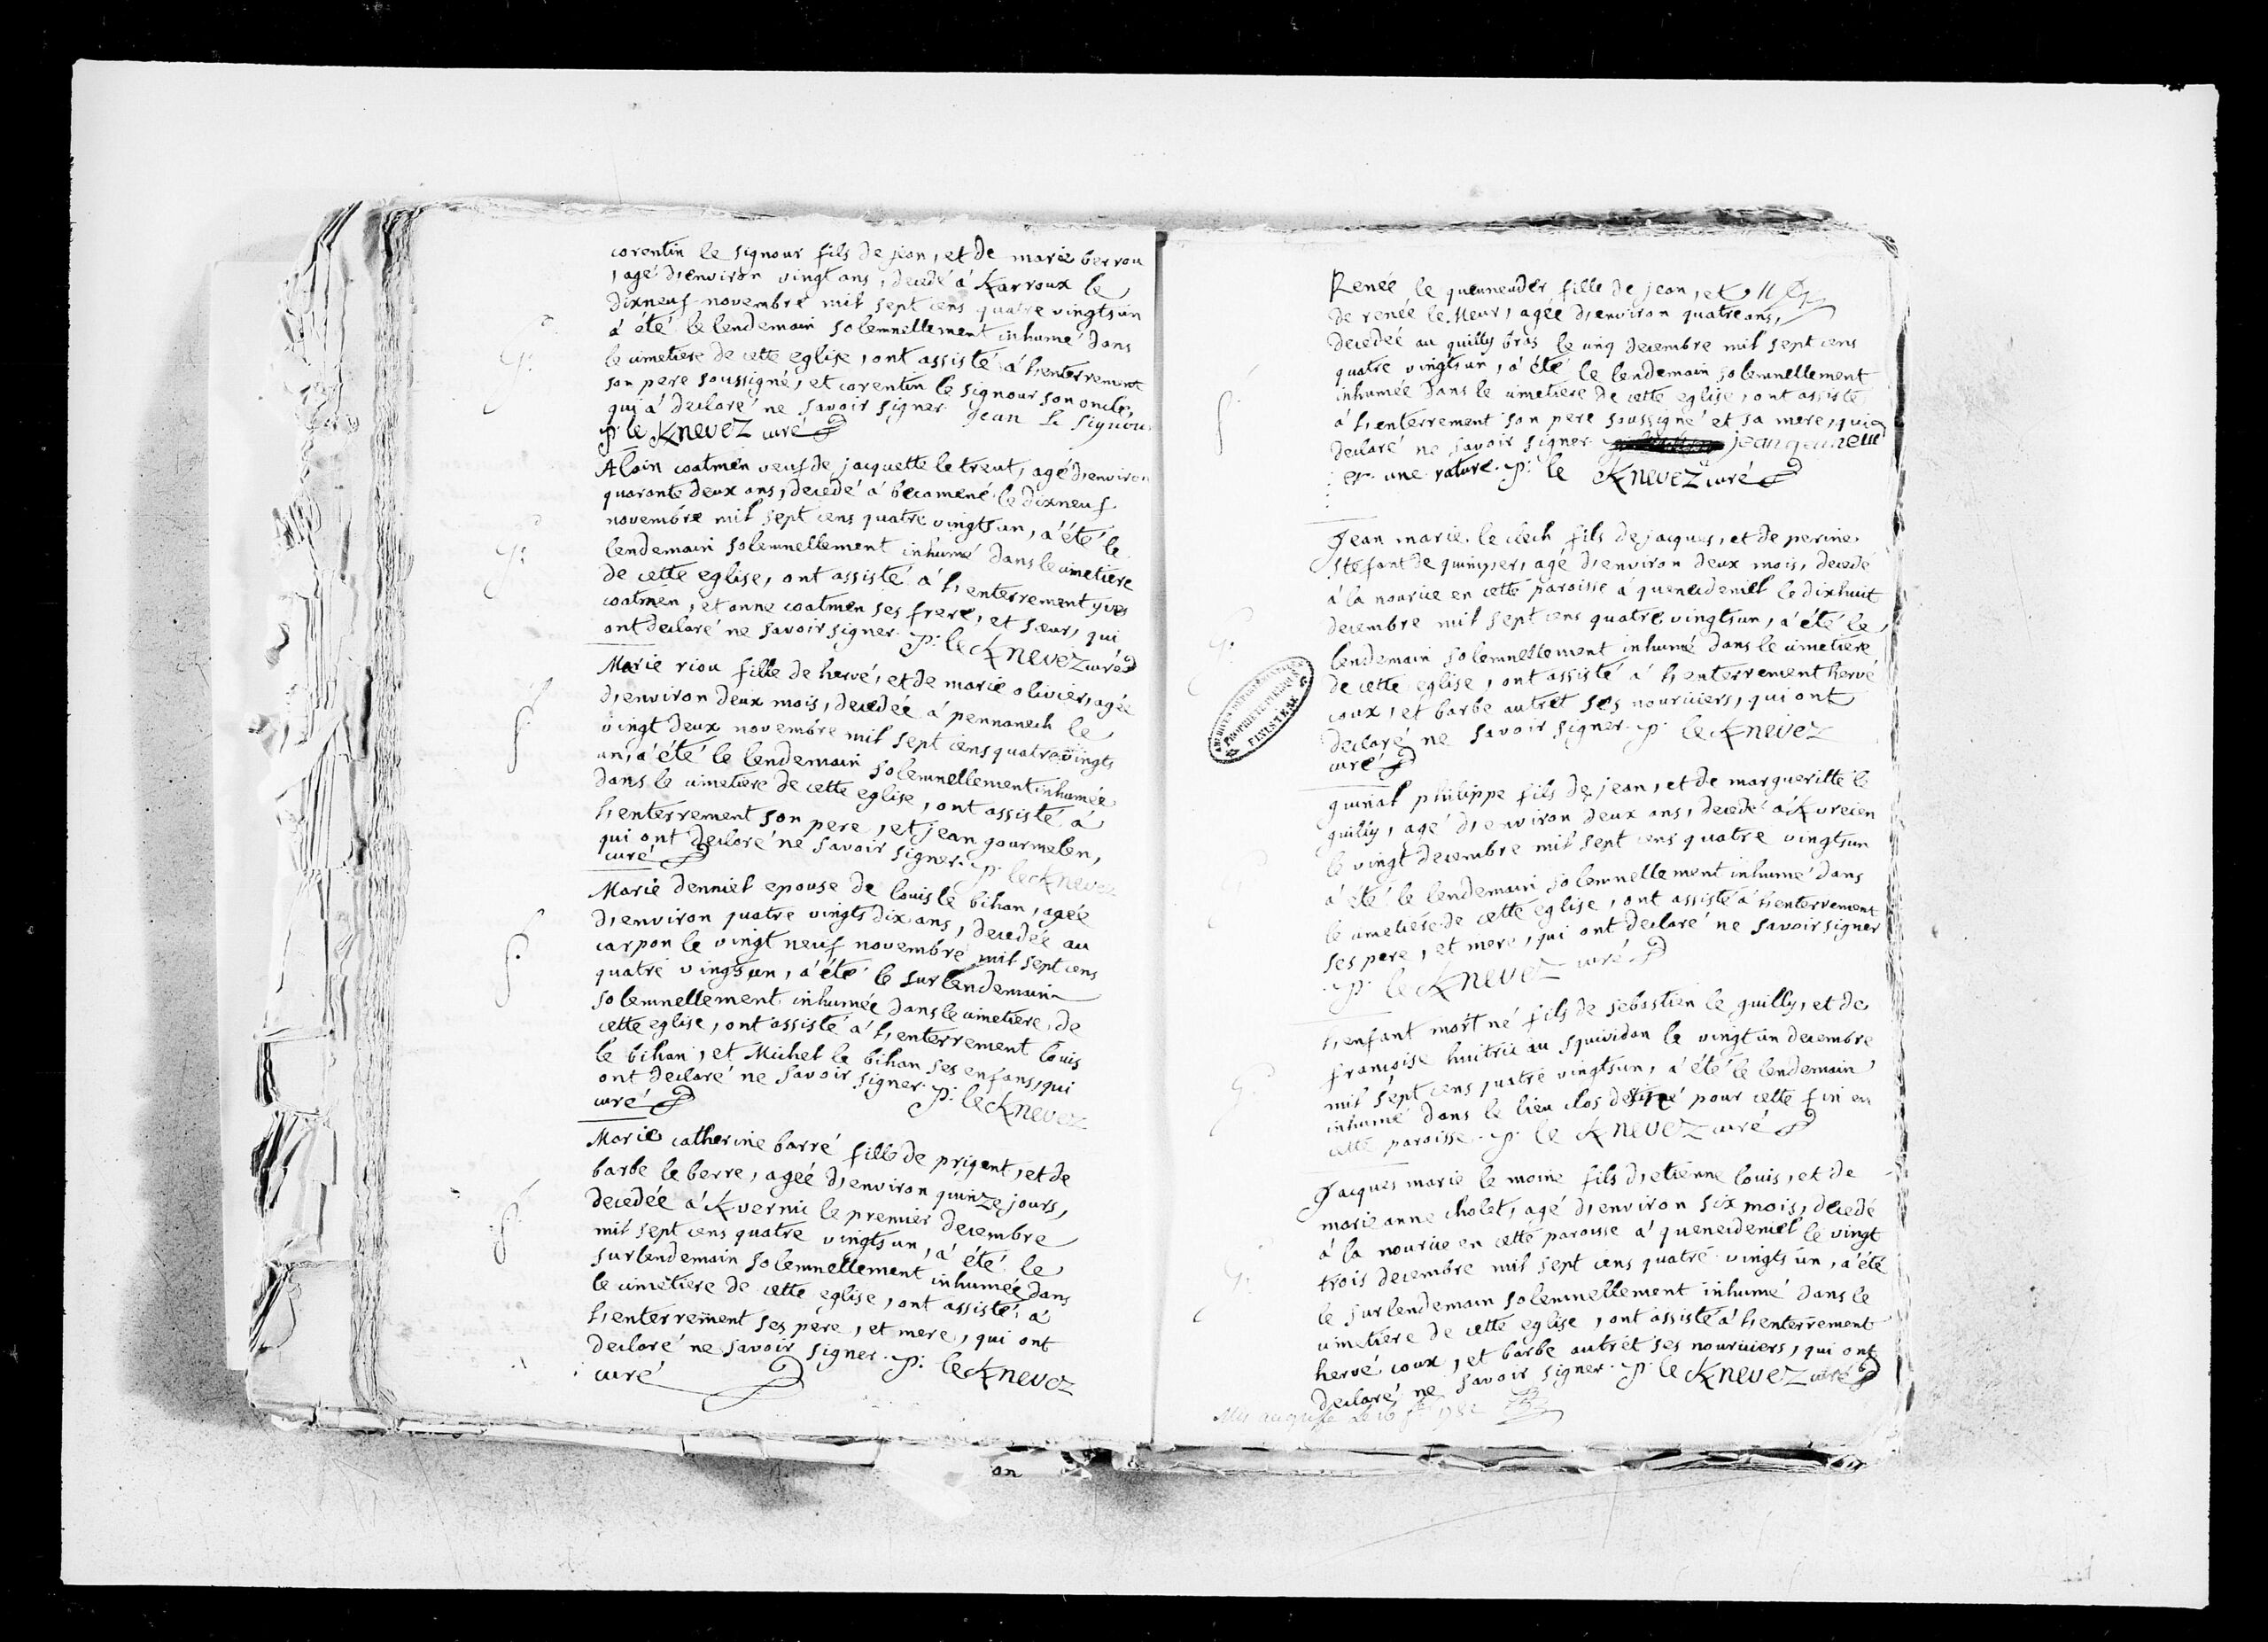 corentin le signour fils de jean, et de marie berrou
, agé d'environ vingt ans, decedé á Karroux le
dixneuf novembre mil sept cens quatre vingts un
á été le lendemain solemnellement inhumé dans
le cimetiere de cette eglise, ont assisté á l'enterrement
son pere soussigné, et corentin le signour son oncle,
qui á declaré ne savoir signer. jean Le Signour
p: le Knevez curé
g:
Alain coatmen veuf de jacquette le treut, agé d'environ
quarante deux ans, decedé á becamené le dixneuf
novembre mil sept cens quatre vingts un, á été le
lendemain solemnellement inhumé dans le cimetiere
de cette eglise, ont assisté á l'enterrement yves
coatmen, et anne coatmen ses frere, et sœur, qui
ont declaré ne savoir signer. p: le Knevez curé
g:
Marie riou fille de hervé, et de marie olivier, agée
d'environ deux mois, decedée á pennanech le
vingt deux novembre mil sept cens quatre vingts
un, á été le lendemain solemnellement inhumée
dans le cimetiere de cette eglise, ont assisté á
l'enterrement son pere, et jean gourmelen,
qui ont declaré ne savoir signer. p: le Knevez
curé
f
Marie denniel epouse de louis le bihan, agée
d'environ quatre vingts dix ans, decedée au
carpon le vingt neuf novembre mil sept cens
quatre vingts un, á été le surlendemain
solemnellement inhumée dans le cimetiere de
cette eglise, ont assisté á l'enterrement louis
le bihan, et Michel le bihan ses enfans, qui
ont declaré ne savoir signer. p: le Knevez
curé
f
Marie catherine barré fille de prigent, et de
barbe le berre, agée d'environ quinze jours,
decedée á Kvernic le premier decembre
mil sept cens quatre vingts un, á été le
surlendemain solemnellement inhumée dans
le cimetiere de cette eglise, ont assisté á
l'enterrement ses pere, et mere, qui ont
declaré ne savoir signer. p: le Knevez
curé
f
Renée le queuneuder fille de jean, et
de renée le Meur, agée d'environ quatre ans,
decedée au quilly bras le cinq decembre mil sept cens
quatre vingts un, á été le lendemain solemnellement
inhumée dans le cimetiere de cette eglise, ont assisté
á l'enterrement son pere soussigné et sa mere, qui a
declaré ne savoir signer.
une rature. p: le Knevez curé
f
Jean marie le clech fils de jacques, et de perine
stefant de quimper, agé d'environ deux mois, decedé
á la nourice en cette paroisse á queneideniel le dixhuit
decembre mil sept cens quatre vingts un, á été le
lendemain solemnellement inhumé dans le cimetiere
de cette eglise, ont assisté á l'enterrement hervé
coux, et barbe autret ses nouriciers, qui ont
declaré ne savoir signer. p: le Knevez
curé
g:
ARCHIVES DÉPARTEMENTALES
PROPRIÉTÉ PUBLIQUE
FINISTÈRE
guinal philippe fils de jean, et de margueritte le
quilly, agé d'environ deux ans, decedé á Kvreien
le vingt decembre mil sept cens quatre vingts un
á été le lendemain solemnellement inhumé dans
le cimetiere de cette eglise, ont assisté á l'enterrement
ses pere, et mere, qui ont declaré ne savoir signer
p: le Knevez curé
l'enfant mort né fils de sebastien le quilly, et de
francoise huitric au squividan le vingt un decembre
mil sept cens quatre vingts un, á été le lendemain
inhumé dans le lieu clos destiné pour cette fin en
cette paroisse. p: le Knevez curé
g:
Jacques marie le moine fils d'etienne louis, et de
marie anne cholet, agé d'environ six mois, decedé
á la nourice en cette paroisse á queneideniel le vingt
trois decembre mil sept cens quatre vingts un, á été
le surlendemain solemnellement inhumé dans le
cimetiere de cette eglise, ont assisté á l'enterrement
hervé coux, et barbe autret ses nouriciers, qui ont
declaré ne savoir signer. p: le Knevez curé
g:
on